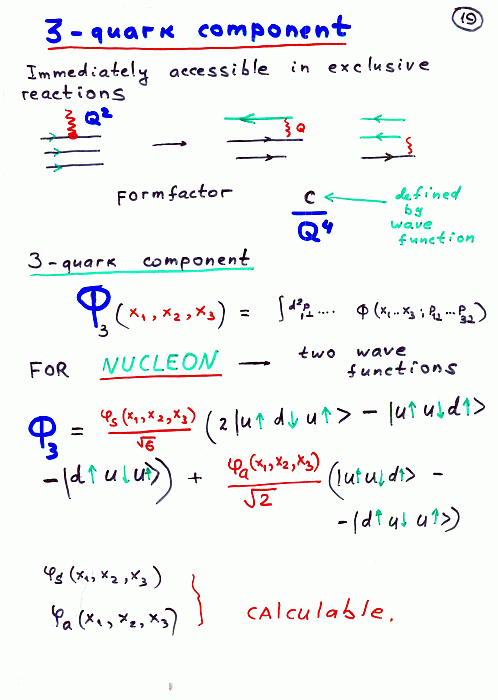 19
3-quark component
Immediately accessible in exclusive
reactions
Q²
Q
Formfactor
C
Q⁴
defined
by
wave
function
3-quark component
Φ₃(x₁, x₂, x₃) = ∫d²p₁⊥.... Φ(x₁..x₃; p₁⊥...p₃⊥)
FOR NUCLEON → two wave
functions
Φ₃ = φs(x₁,x₂,x₃)/√6 (2|u↑ d↓ u↑> - |u↑ u↓ d↑>
-|d↑ u↓ u↑>) + φa(x₁,x₂,x₃)/√2 (|u↑u↓d↑> -
-|d↑u↓ u↑>)
φs(x₁, x₂, x₃)
φa(x₁, x₂, x₃)
CALCULABLE.